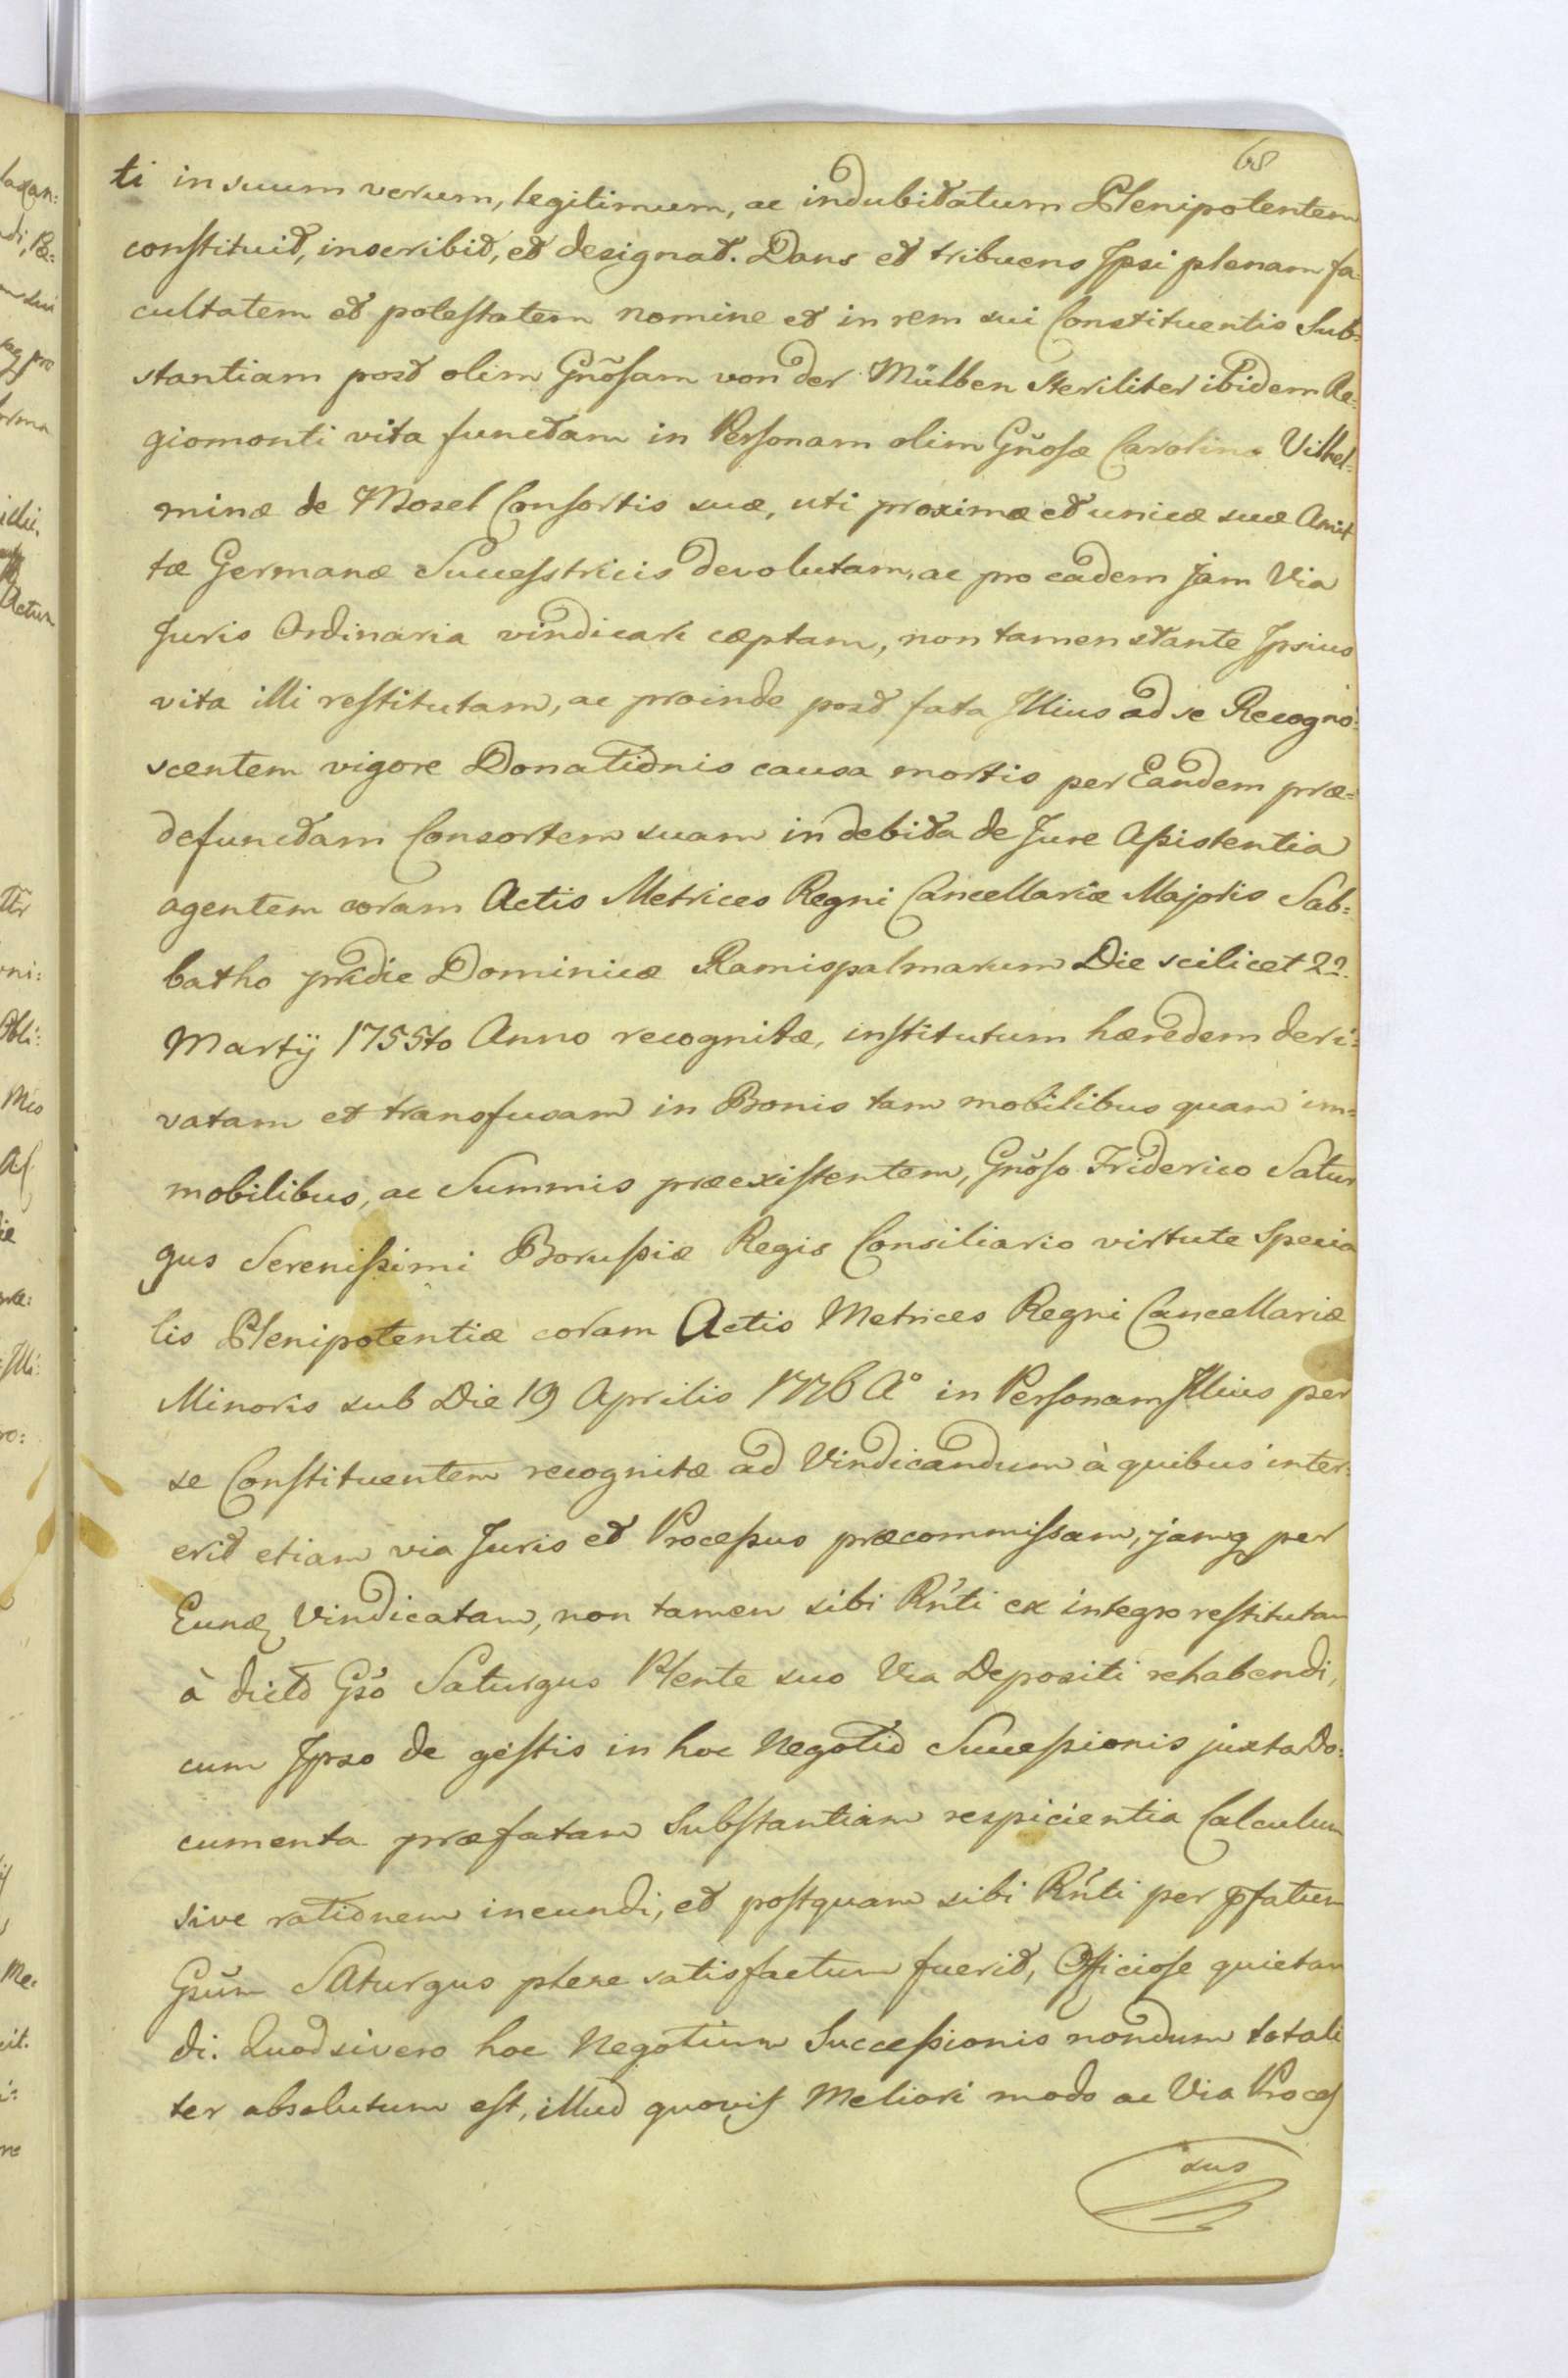 68
ti in suum verum, legitimum, ac indubitatum Plenipotentem
constituit, inscribit, et designat. Dans et tribuens Ipsi plenam fa=
cultatem et potestatem nomine et in rem sui Constituentis Sub=
stantiam post olim Gnõsam von der Mülben steriliter ibidem Re=
giomonti vita functam in Personam olim Gñosæ Carolinæ Vilhel=
minæ de Mosel Consortis suæ, uti proximæ et unicæ suæ Amit
tæ Germanæ Successtricis devolutam, ac pro eadem jam Via
Juris Ordinaria vindicari cæptam, non tamen stante Ipsius
vita illi restitutam, ac proinde post fata Illius ad se Recogno=
scentem vigore Donationis causa mortis per Eandem præ=
defunctam Consortem suam in debita de Jure Assistentia
agentem coram Actis Metrices Regni Cancellariæ Majoris Sab=
batho pridie Dominicæ Ramispalmarum Die scilicet 22.
Martij 1755to Anno recognitæ, institutum hæredem deri=
vatam et transfusam in Bonis tam mobilibus quam im=
mobilibus, ac Summis præexistentem, Gnõso Friderico Satur
gus Serenissimi Borussiæ Regis Consiliario virtute Specia
lis Plenipotentiæ coram Actis Metrices Regni Cancellariæ
Minoris sub Die 19 Aprilis 1776 Aº in Personam Illius per
se Constituentem recognitæ ad Vindicandum à quibus inter=
erit etiam via Juris et Processus præcommissam, jamq per
Eunđ Vindicatam, non tamen sibi Rñti ex integro restitutam
à dicto Gso Saturgus Plente suo Via Depositi rehabendi,
cum Ipso de gestis in hoc Negotio Successionis juxta Do=
cumenta præfatam Substantiam respicientia Calculum
sive rationem ineundi, et postquam sibi Rñti per pfatum
Gsum Saturgus plene satisfactum fuerit, Officiose quietan
di. Quodsi vero hoc Negotium Successionis nondum totali
ter absolutum est, illud quovis Meliori modo ac Via Proces
sus